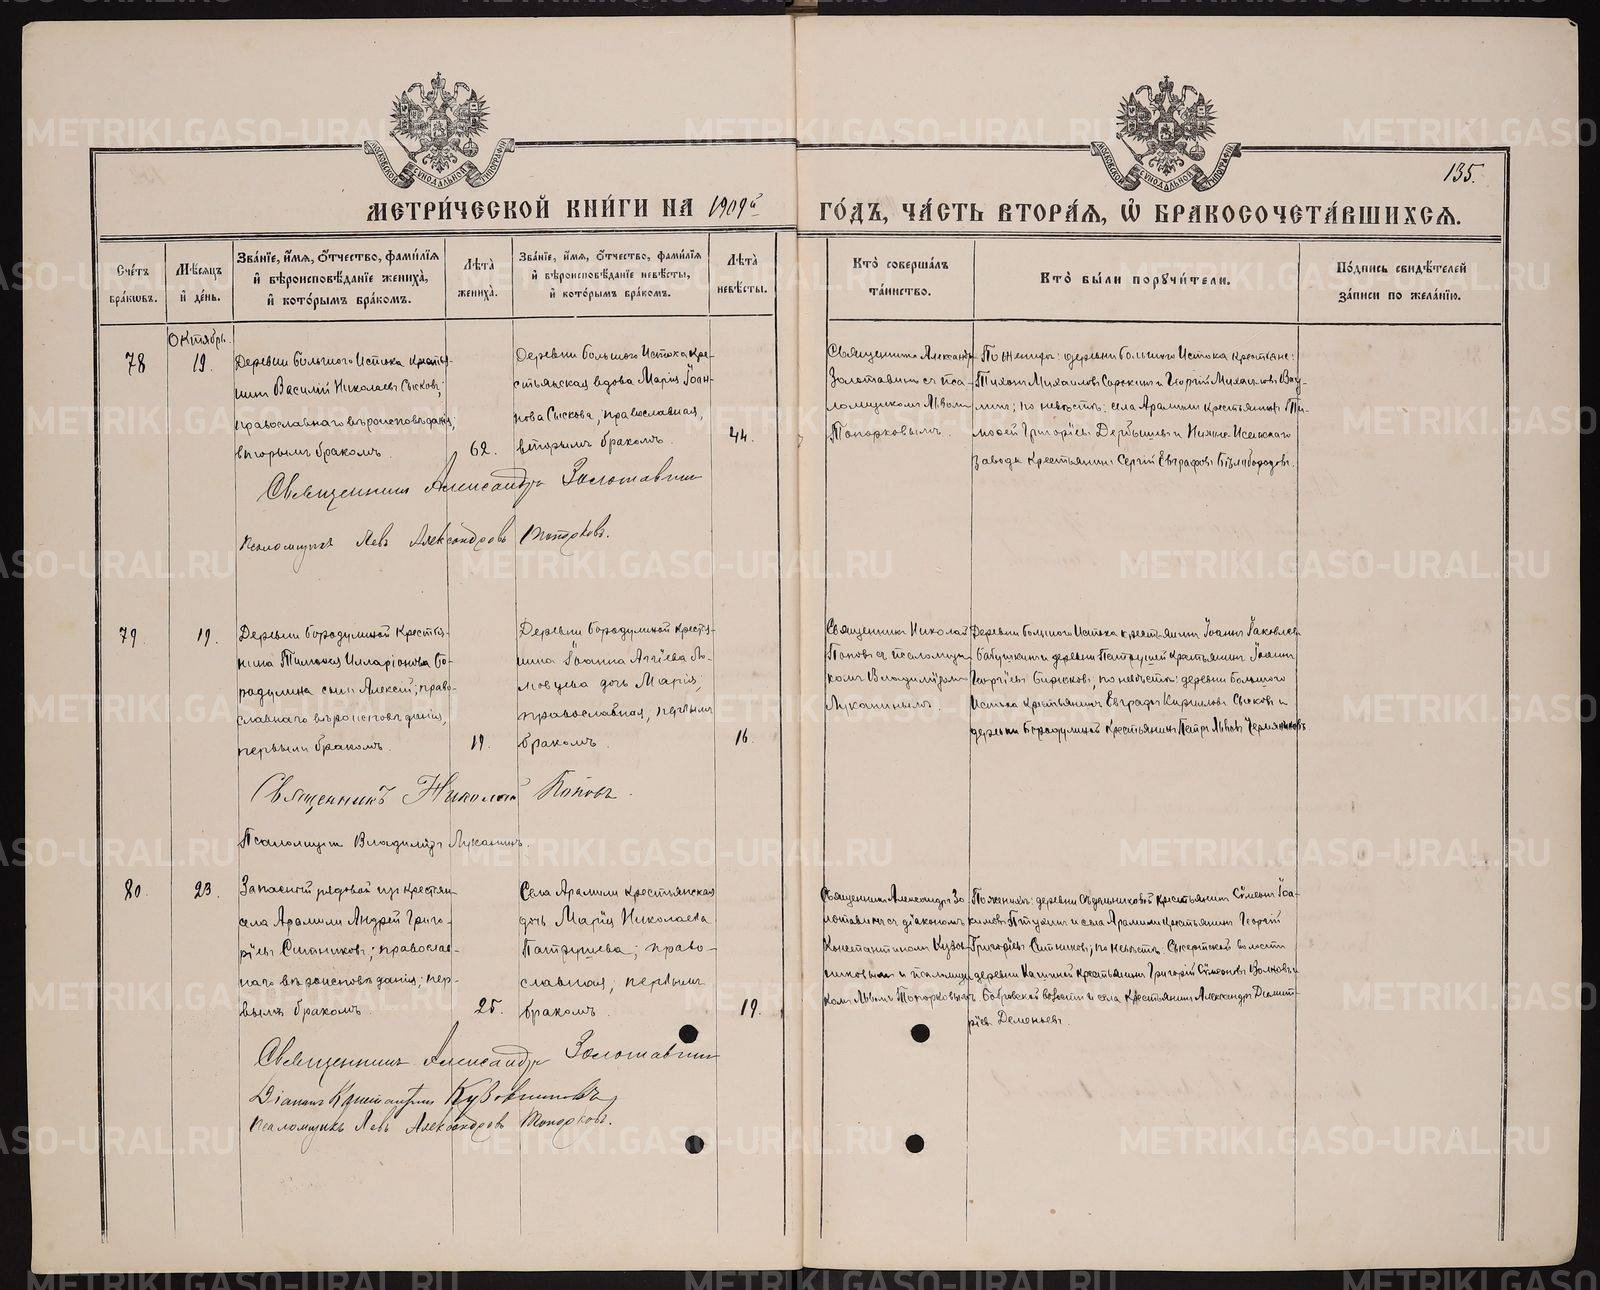 135.
МЕТРИ́ЧЕСКОЙ КНИ́ГИ НА 1909й ГО́ДЪ, ЧА́СТЬ ВТОРА́Я, Ѡ҆ БРАКОСОЧЕТА́ВШИХСЯ.
Сче́тъ бра́кѡвъ.
Мѣ́сяцъ и҆ де́нь.
Зва́нїе, и҆́мя, ѻ҆́тчество, фами́лїя и҆ вѣроисповѣ́данїе жениха̀, и҆ кото́рымъ бра́комъ.
Лѣ́та жениха̀.
Зва́нїе, и҆́мя, ѻ҆́тчество, фами́лїя и҆ вѣроисповѣ́данїе невѣ́сты, и҆ кото́рымъ бра́комъ.
Лѣ́та невѣ́сты.
Кто̀ соверша́лъ та́инство.
Кто̀ бы́ли порꙋчи́тели.
По́дпись свидѣ́телей за́писи по жела́нїю.
Октябрь.
78
19.
Деревни большого Истока кресть-
нинъ Василiй Николаевъ Сысковъ;
православнаго вѣроисповѣданiя;
вторымъ бракомъ.
62.
Деревни большого Истока кре-
стьянская вдова Марiя Iоан-
нова Сыскова, православная,
вторымъ бракомъ.
44.
Священникъ Александръ
Золотавинъ съ пса-
ломщикомъ Львомъ
Топорковымъ.
По женихѣ: деревни большого Истока крестьяне:
Тихонъ Михаиловъ Сорокинъ и Георгiй Михаиловъ
по невѣстѣ: села Арамили крестьянинъ Ти-
мофей Григорiевъ Дербышевъ и Нижне-Исетскаго
завода крестьянинъ Сергiй Евграфовъ Бѣлобородовъ.
Священникъ Александръ Золотавинъ
Псаломщикъ Левъ Александровъ Топорковъ.
79
19.
Деревни Бородулиной крестья-
нина Тимофея Илларiонова Бо-
родулина сынъ Алексiй; право-
славнаго вѣроисповѣданiя,
первымъ бракомъ.
19.
Деревни Бородулиной кресть-
нина Iоанна Аггiева Ло-
мовцева дочь Марiя;
православная, первымъ
бракомъ.
16.
Священникъ Николай
Поповъ съ псаломщи-
комъ Владимiромъ
Луканинымъ.
Деревни большого Истока крестьянинъ Iоаннъ Iаковлевъ
Бабушкинъ и деревни Патрушей крестьянинъ Iоаннъ
Георгiевъ Бирюковъ, по невѣстѣ: деревни большого
Истока крестьянинъ Евграфъ Кирилловъ Сысковъ и
деревни Бородулиной крестьянинъ Петръ Львовъ
Священникъ Николай Поповъ.
Псаломщикъ Владимiръ Луканинъ.
80.
23.
Запасной рядовой изъ крестьян
села Арамили Андрей Григо-
рiевъ Ситниковъ; православ-
наго вѣроисповѣданiя; пер-
вымъ бракомъ.
25.
Села Арамили крестьянская
дочь Марiя Николаева
Патрушева; право-
славная, первымъ
бракомъ.
19.
Священникъ Александръ Зо-
лотавинъ съ дiакономъ
Константиномъ Кузов-
никовымъ и псаломщи-
комъ Львомъ Топорковымъ
По женихѣ: деревни Сѣдельниковой крестьянинъ Сѵмеонъ Iоа-
кимовъ Птухинъ и села Арамили крестьянинъ Георгiй
Григорiевъ Ситниковъ; по невѣстѣ: Сысертской волости
деревни Кашиной крестьянинъ Григорiй Сѵмеоновъ Волковъ и
Бобровской волости и села крестьянинъ Александръ Димит-
рiевъ Дементьевъ.
Священникъ Александръ Золотавинъ
Дiаконъ Константинъ Кузовниковъ
Псаломщикъ Левъ Александровъ Топорковъ.
METRIKI.GASO-URAL.RU